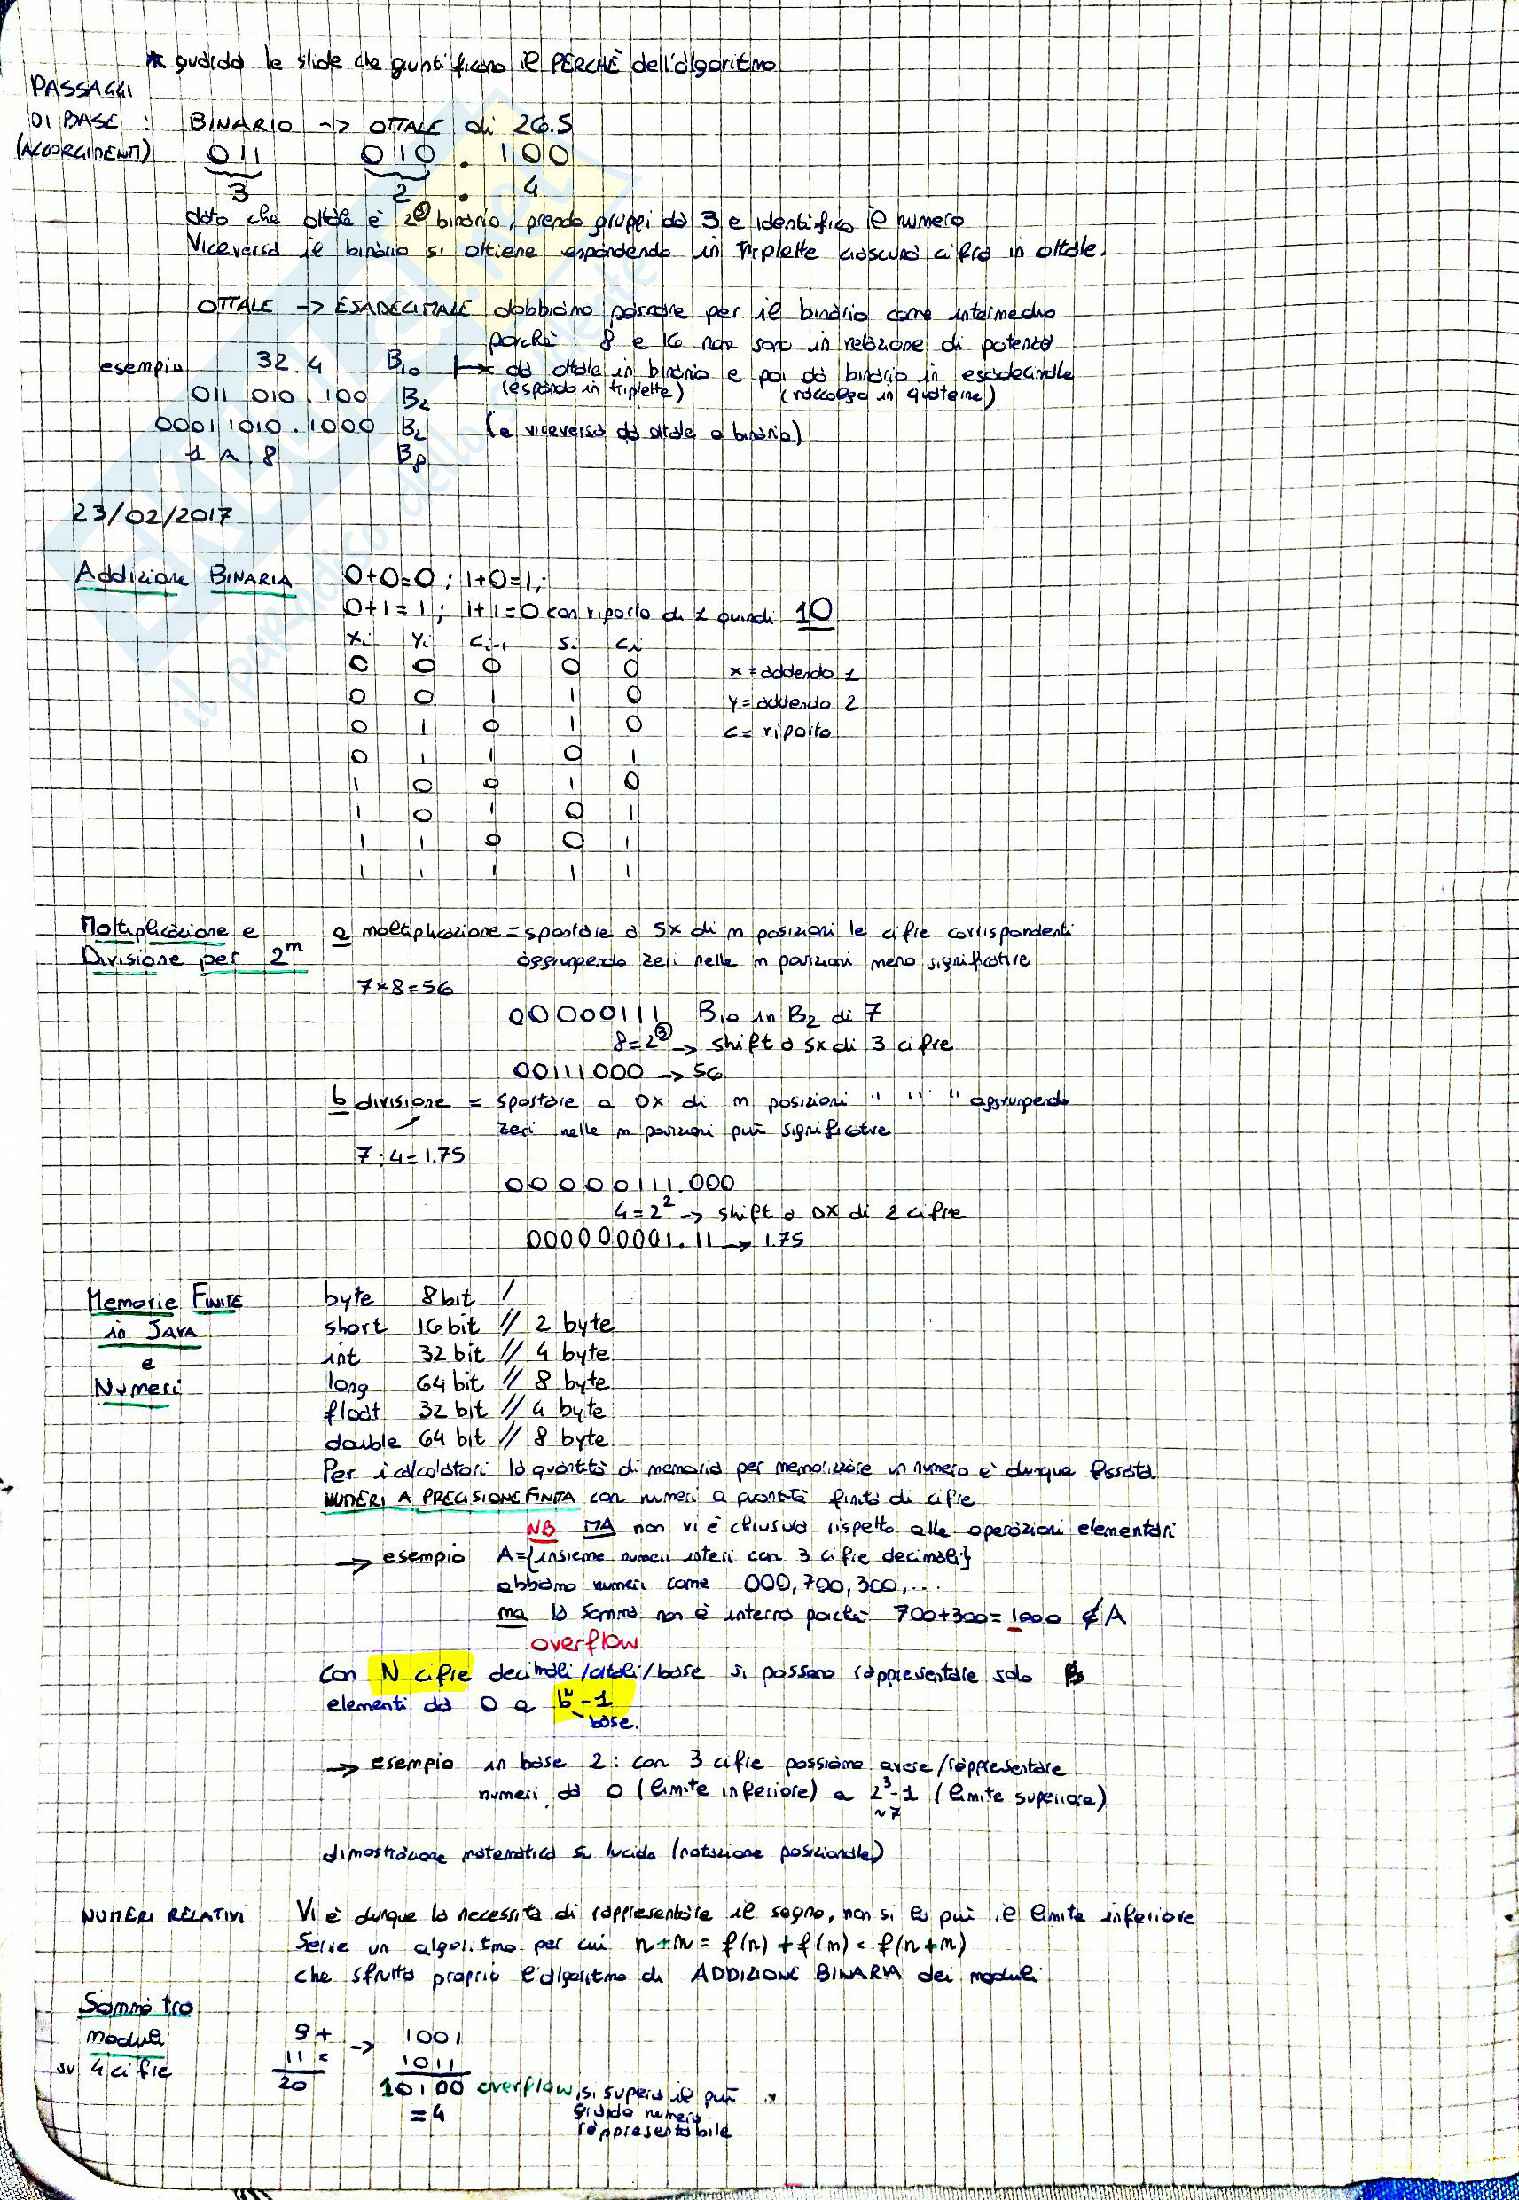 * guarda le slide che giustificano il PERCHÈ dell'algoritmo
PASSAGGI
DI BASE : BINARIO -> OTTALE di 26.5
(ACCORGIMENTI) 011 010 . 100
3 2 . 4
dato che ottale è 2³ binario, prendo gruppi da 3 e identifico il numero
Viceversa il binario si ottiene espandendo in triplette ciascuna cifra in ottale.
OTTALE -> ESADECIMALE dobbiamo passare per il binario come intermedio
perchè 8 e 16 non sono in relazione di potenza
esempio 32.4 B10 |-> da ottale in binario e poi da binario in esadecimale
(espando in triplette) (raccolgo in quaterne)
011 010.100 B2
00011010.1000 B2 (e viceversa da ottale a binario)
1 A . 8 B8
23/02/2017
Addizione BINARIA 0+0=0 ; 1+0=1;
0+1=1 ; 1+1=0 con riporto di 1 quindi 10
xi yi ci-1 si ci
0 0 0 0 0 x = addendo 1
0 0 1 1 0 y = addendo 2
0 1 0 1 0 c = riporto
0 1 1 0 1
1 0 0 1 0
1 0 1 0 1
1 1 0 0 1
1 1 1 1 1
Moltiplicazione e a moltiplicazione = spostare a SX di m posizioni le cifre corrispondenti
Divisione per 2^m aggiungendo zeri nelle m posizioni meno significative
7*8=56
00000111 B10 in B2 di 7
8=2³ -> shift a sx di 3 cifre
00111000 -> 56
b divisione = spostare a DX di m posizioni " " " aggiungendo
zeri nelle m posizioni più significative
7:4=1.75
00000111.000
4=2² -> shift a DX di 2 cifre
000000001.11 -> 1.75
Memorie FINITE byte 8 bit /
in JAVA short 16 bit // 2 byte
e int 32 bit // 4 byte
Numeri long 64 bit // 8 byte
float 32 bit // 4 byte
double 64 bit // 8 byte
Per i calcolatori la quantità di memoria per memorizzare un numero è dunque fissata
NUMERI A PRECISIONE FINITA con numeri a quantità finita di cifre
NB MA non vi è chiusura rispetto alle operazioni elementari
-> esempio A={insieme numeri interi con 3 cifre decimali}
abbiamo numeri come 000, 700, 300, ...
ma la somma non è interna poichè 700+300=1000 ∉ A
overflow
con N cifre decimali/ottali/base si possono rappresentare solo
elementi da 0 a b^N-1
base.
-> esempio in base 2: con 3 cifre possiamo avere/rappresentare
numeri da 0 (limite inferiore) a 2³-1 (limite superiore)
~7
dimostrazione matematica su lucido (notazione posizionale)
NUMERI RELATIVI Vi è dunque la necessità di rappresentare il segno, non si ha più il limite inferiore
Serve un algoritmo per cui n+m = f(n) + f(m) = f(n+m)
che sfrutta proprio l'algoritmo di ADDIZIONE BINARIA dei moduli
Somma tra
moduli 9+ -> 1001
su 4 cifre 11= 1011
20 10100 overflow, si supera il più
=4 grande numero
rappresentabile